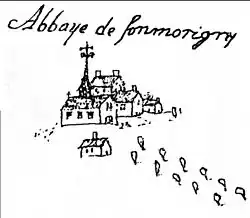 Abbaye de fonmorigny